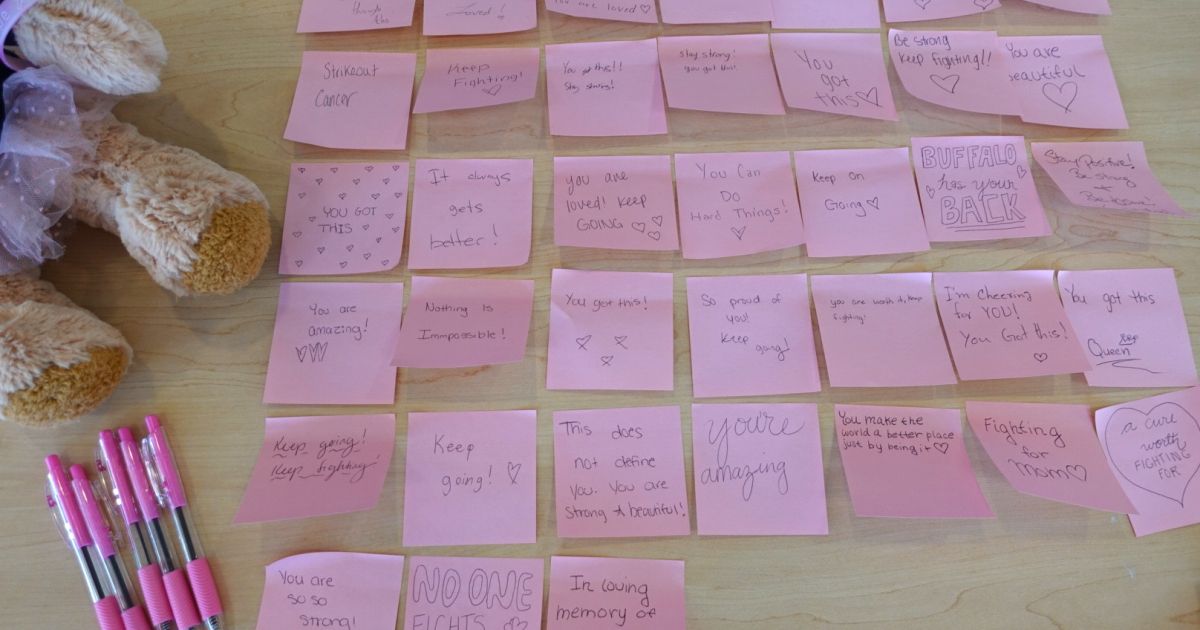 Loved!
You are loved
Strikeout
Cancer
Keep
Fighting!
You got this!!
Stay strong!
Stay strong!
you got this!
You
got
this
Be strong
Keep fighting!!
You are
beautiful
YOU GOT
THIS
It always
gets
better!
you are
loved! Keep
GOING
You Can
Do
Hard Things!
Keep on
Going
BUFFALO
has your
BACK
Stay Positive!
Be strong
You are
amazing!
Nothing Is
Immpossible!
You got this!
So proud of
you!
Keep
going!
you are worth it, keep
fighting!
I'm Cheering
for YOU!
You Got this!
You got this
Queen
Keep going!
Keep fighting!
Keep
going!
This does
not define
you. You are
strong & beautiful!
you're
amazing
You make the
world a better place
just by being it
Fighting
for
Mom
a cure
worth
FIGHTING
FOR
You are
so so
strong!
NO ONE
FIGHTS
In loving
memory of